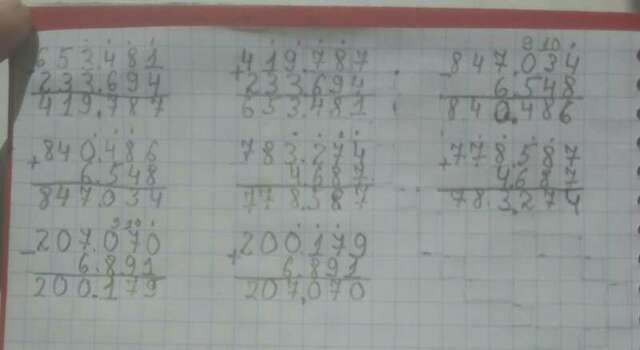 -653.481
233.694
419.787
+419.787
233.694
653.481
9 10
-847.034
6.548
840.486
+840.486
6.548
847.034
783.274
4.687
778.587
+778.587
4.687
783.274
9 10
-207.070
6.891
200.179
+200.179
6.891
207.070